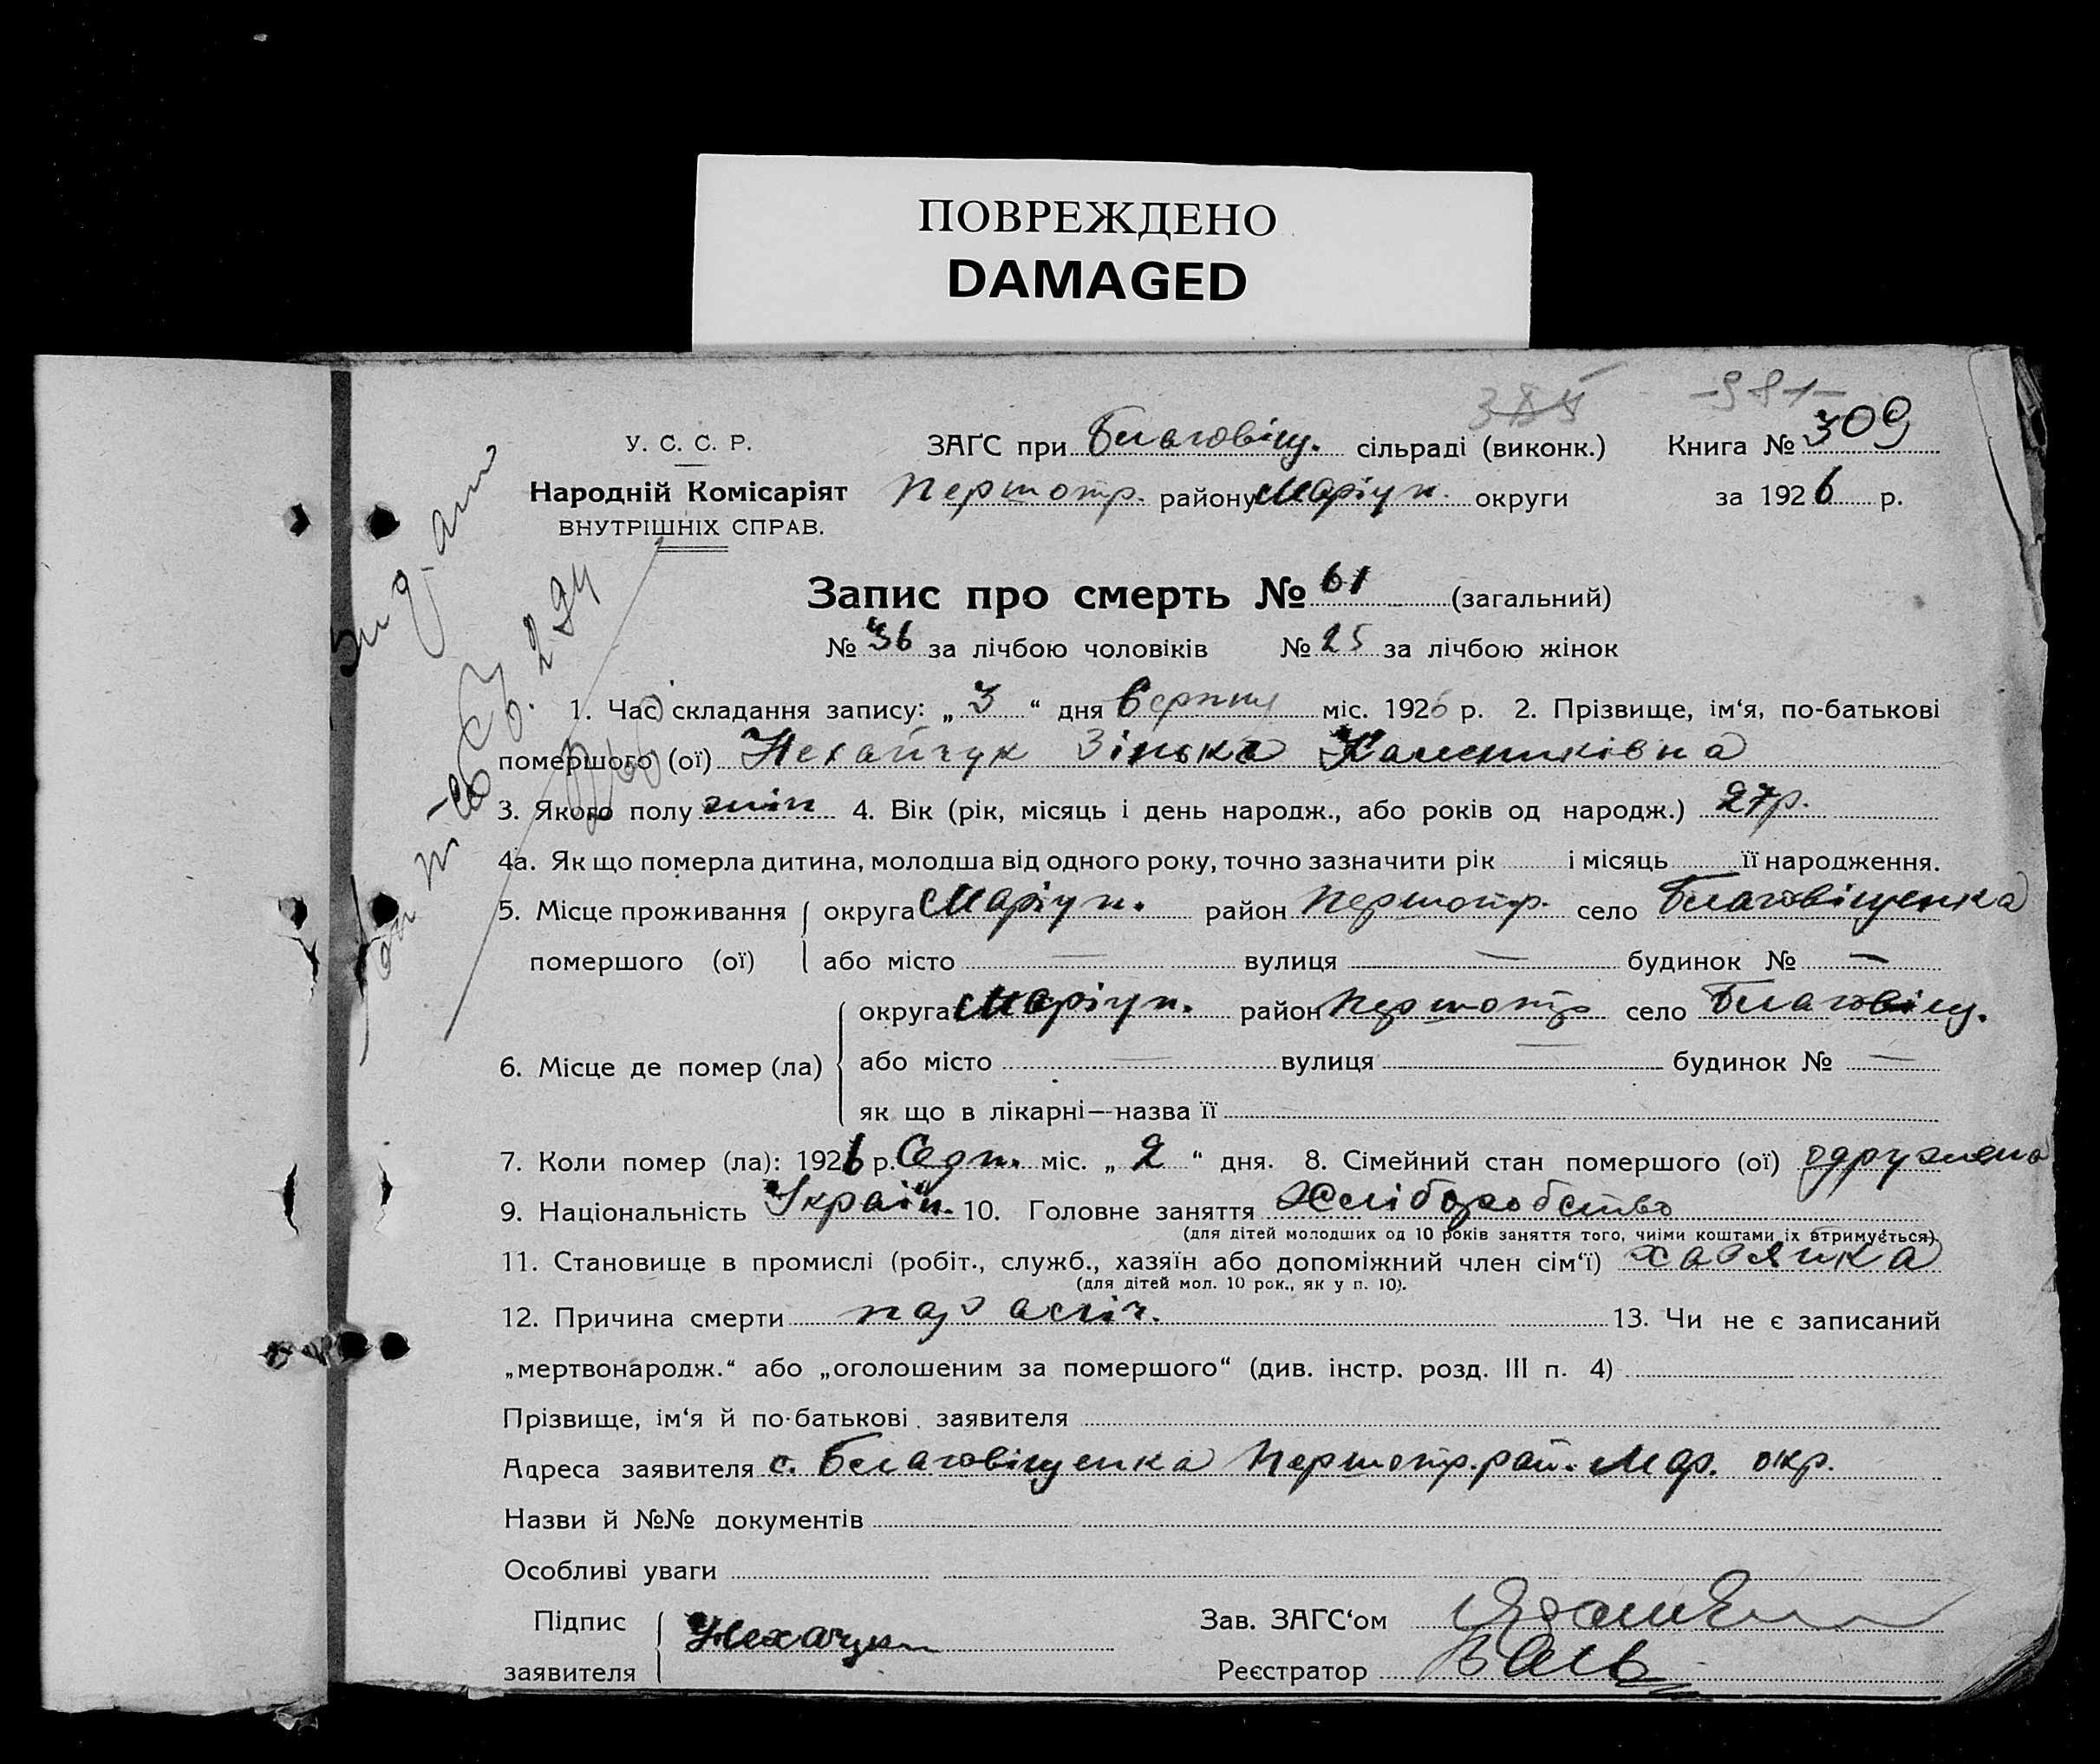 ПОВРЕЖДЕНО
DAMAGED
385 -981-
У. С. С. Р. ЗАГС при Благовіщ. сільраді (виконк.) Книга № 309
Народній Комісаріят Першотр. району Маріуп. округи за 1926 р.
ВНУТРІШНІХ СПРАВ.
Запис про смерть № 61 (загальний)
№ 36 за лічбою чоловіків № 25 за лічбою жінок
1. Час складання запису: „3“ дня Серпня міс. 1926 р. 2. Прізвище, ім‘я, по-батькові
помершого (ої) Нехайчук Зінька
3. Якого полу жін 4. Вік (рік, місяць і день народж., або років од народж.) 27р.
4а. Як що померла дитина, молодша від одного року, точно зазначити рік і місяць її народження.
5. Місце проживання округа Маріуп. район Першотр. село Благовіщенка
помершого (ої) або місто — вулиця — будинок № —
округа Маріуп. район Першотр село Благовіщ.
6. Місце де помер (ла) або місто — вулиця — будинок № —
як що в лікарні—назва її
7. Коли помер (ла): 1926 р. Серп. міс. „2“ дня. 8. Сімейний стан помершого (ої) одружена
9. Національність Україн. 10. Головне заняття Хліборобство
(для дітей молодших од 10 років заняття того, чиїми коштами їх втримується).
11. Становище в промислі (робіт., служб., хазяїн або допоміжний член сім‘ї) хазяйка
(для дітей мол. 10 рок., як у п. 10).
12. Причина смерти 13. Чи не є записаний
„мертвонародж.“ або „оголошеним за помершого“ (див. інстр. розд. III п. 4)
Прізвище, ім‘я й по-батькові заявителя
Адреса заявителя с. Благовіщенка Першотр. рай. Мар. окр.
Назви й №№ документів
Особливі уваги
Підпис Зав. ЗАГС‘ом
заявителя Реєстратор